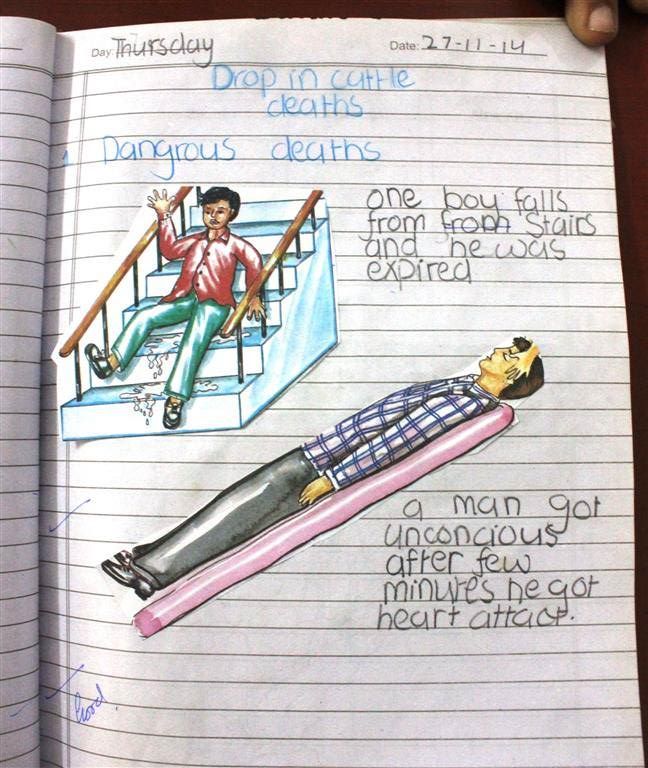 Day: Thursday Date: 27-11-14
Drop in cattle
deaths
1 Dangrous deaths
one boy falls
from from Stairs
and he was
expired
a man got
unconcious
after few
minutes he got
heart attact.
Good.